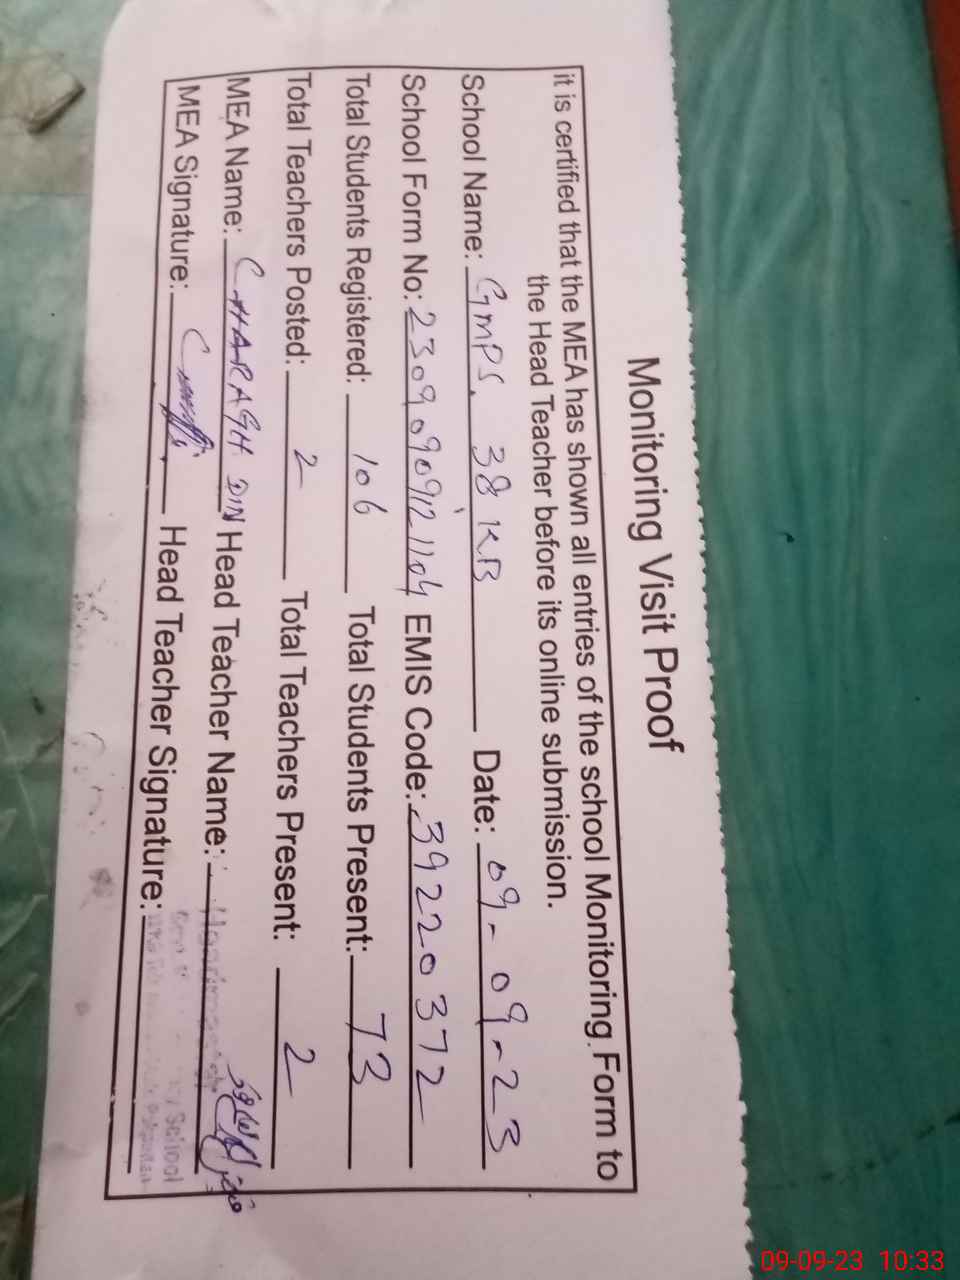 Monitoring Visit Proof
it is certified that the MEA has shown all entries of the school Monitoring Form to
the Head Teacher before its online submission.
School Name: GMPS. 38 KB Date: 09-09-23
School Form No: 23090909121104 EMIS Code: 39220372
Total Students Registered: 106 Total Students Present: 73
Total Teachers Posted: 2 Total Teachers Present: 2
MEA Name: CHARAGH DIN Head Teacher Name: Headmaster
MEA Signature: Head Teacher Signature:
School
09-09-23 10:33